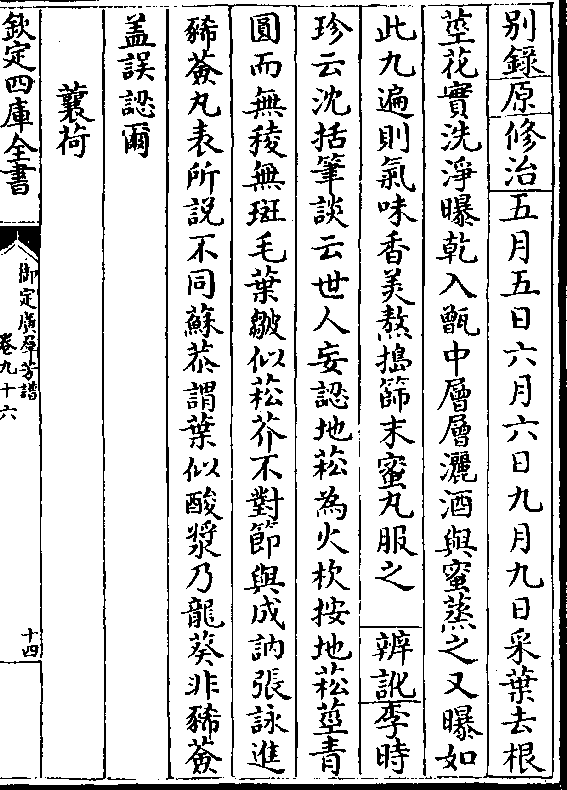 別錄原修治五月五日六月六日九月九日采葉去根
莖花實洗淨曝乾入甑中層層灑酒與蜜蒸之又曝如
此九遍則氣味香美熬搗篩末蜜丸服之辨訛李時
珍云沈括筆談云世人妄認地菘為火杴按地菘莖青
圓而無稜無斑毛葉皺似菘芥不對節與成訥張詠進
豨薟丸表所説不同蘇恭謂葉似酸漿乃龍葵非豨薟
盖誤認爾
蘘荷
欽定四庫全書
御定廣羣芳譜
卷九十六
十四